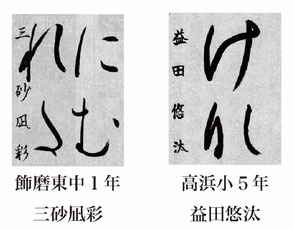 にむ
れ
三砂凪彩
飾磨東中1年
三砂凪彩
け
益田悠汰
高浜小5年
益田悠汰